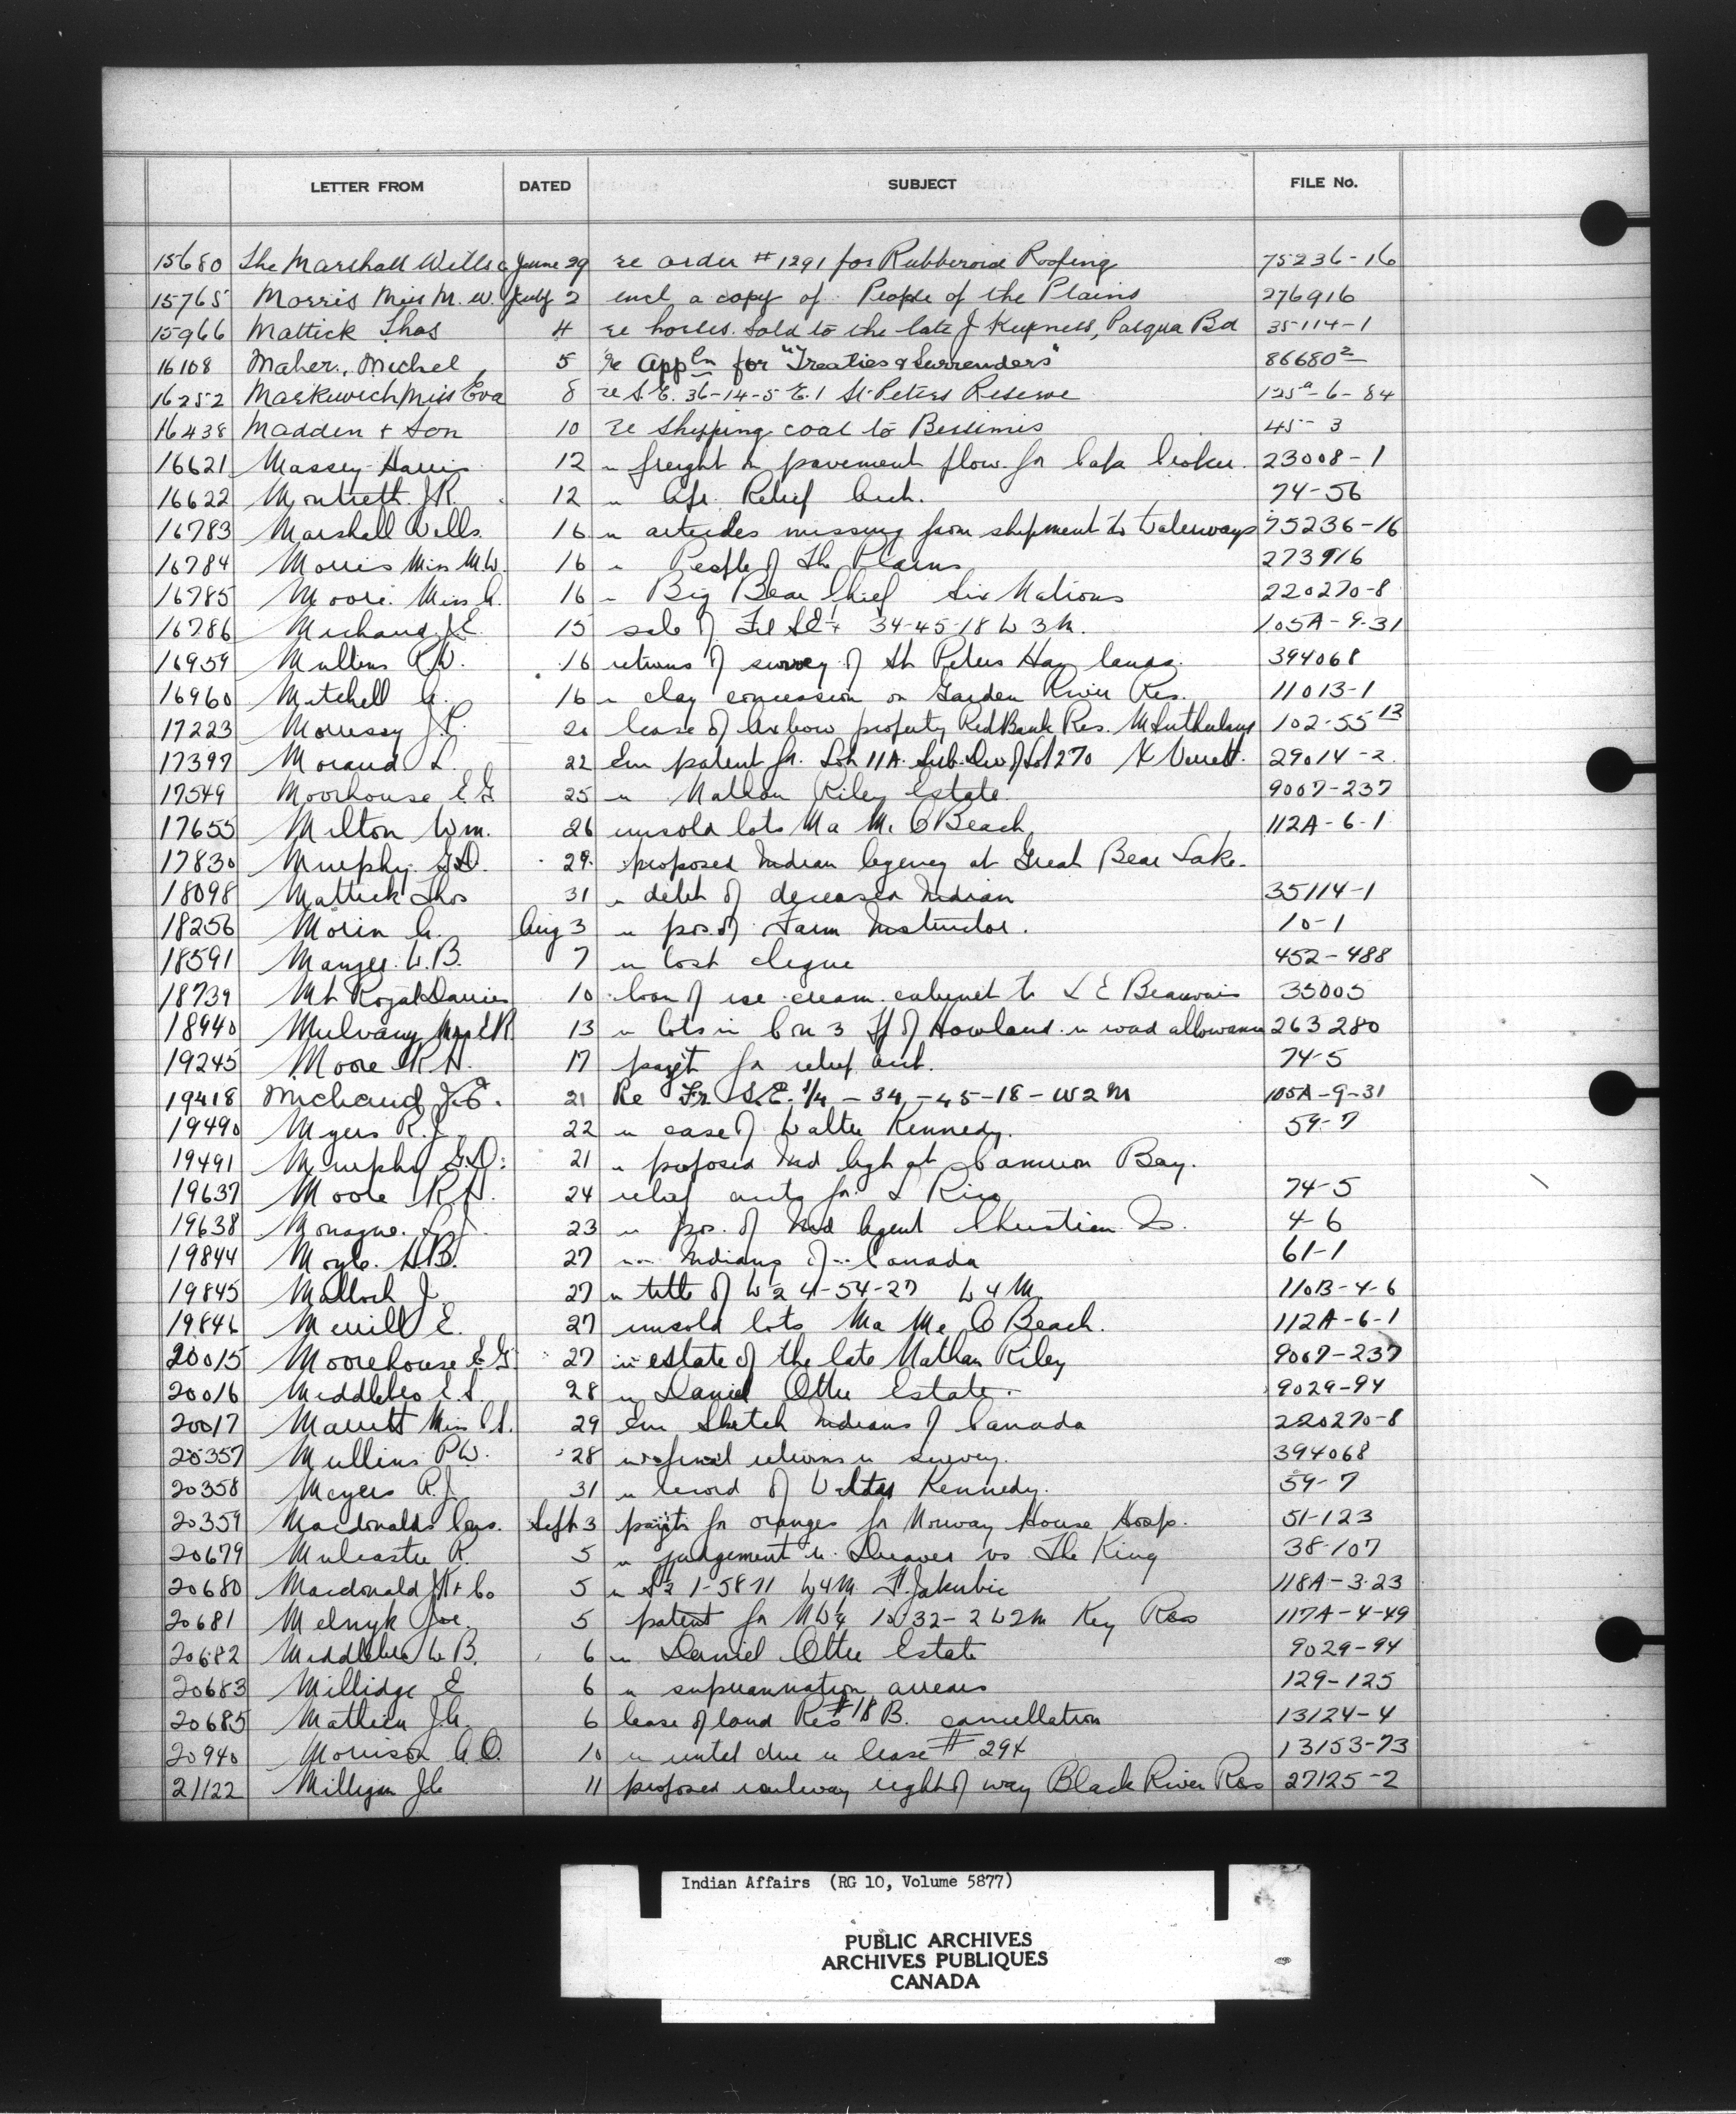 LETTER FROM DATED SUBJECT FILE No.
15680 The Marshall Wells Co June 29 re order #1291 for Rubberoid Roofing 75236-16
15765 Morris Miss M. W. July 2 encl a copy of People of the Plains 276916
15966 Mattick Thos 4 re horses sold to the late J , Pasqua Bd 35114-1
16108 Maher, Michel 5 re Appln for "Treaties & Surrenders" 86680²
16252 Markewich Miss Eva 8 re S.E. 36-14-5 E.1 St. Peters Reserve 125a-6-84
16438 Madden & Son 10 re shipping coal to Bersimis 45-3
16621 Massey-Harris 12 " freight on pavement plow for 23008-1
16622 J.R. 12 " Relief Acct. 74-56
16783 Marshall Wells 16 " articles missing from shipment to Waterways 75236-16
16784 Morris Miss M.W. 16 " People of The Plains 273916
16785 Moore Miss A. 16 " Big Bear Chief Six Nations 220270-8
16786 Michaud J.E. 15 sale of Frl SE¼ 34-45-18 W 3 M. 105A-9-31
16959 Mullins P.W. 16 returns of survey of St Peters Hay lands 394068
16960 Mitchell A. 16 " clay concession on Garden River Res. 11013-1
17223 Morrissy J.P. 20 lease of Oxbow property Red Bank Res. M Sutherland 102-55 13
17397 Moraud L. 22 patent for Lot 11A Sub. Div of Lot 270 29014-2
17549 Moorhouse E G 25 " Nathan Riley Estate 9067-237
17655 Milton Wm. 26 unsold lots Ma Me O Beach 112A-6-1
17830 Murphy G.D. 29 proposed Indian Agency at Great Bear Lake.
18098 Mattick Thos 31 " debt of deceased Indian 35114-1
18256 Morin A. Aug 3 " pos. of Farm Instructor. 10-1
18591 W.B. 7 " lost cheque 452-488
18739 Mt Royal Dairies 10 loan of ice cream cabinet to L E Beauvais 35005
18940 Mulvany 13 " lots in Con 3 Tp of Howland " road allowance 263280
19245 Moore R N. 17 payt for relief acct. 74-5
19418 Michaud J.E. 21 Re Fr S.E. 1/4 - 34 - 45-18 - W2M 105A-9-31
19490 Myers R.J. 22 " case of Walter Kennedy. 59-7
19491 Murphy G.D. 21 " proposed Ind Agt at Cameron Bay.
19637 Moore R N. 24 relief accts for L 74-5
19638 Monague L J. 23 " pos. of Ind Agent Christian Is. 4-6
19844 H.B. 27 " Indians of Canada 61-1
19845 Malloch J. 27 " title of W2 4-54-27 W4M. 110B-4-6
19846 Merrill E. 27 unsold lots Ma Me O Beach. 112A-6-1
20015 Moorehouse E G 27 " estate of the late Nathan Riley 9067-237
20016 Middlebro 28 " Daniel Otter Estate. 9029-94
20017 Miss 29 Sketch Indians of Canada 220270-8
20357 Mullins P.W. 28 " final returns " survey. 394068
20358 Meyers R.J. 31 " record of Walter Kennedy. 59-7
20359 Macdonalds Cons. Sept 3 payts for oranges for Norway House Hosp. 51-123
20679 Mulcaster R. 5 " judgement " vs The King 38-107
20680 Macdonald & Co 5 " 1-58-11 W4M. Jakubic 118A-3-23
20681 Melnyk Joe 5 patent for NW¼ 10 32-2 W2M Key Res 117A-4-49
20682 Middlebro W B. 6 " Daniel Otter Estate 9029-94
20683 Millidge E 6 " superannuation arrears 129-125
20685 Mathieu J.A. 6 lease of land Res #18 B. cancellation 13124-4
20940 Morrison A O. 10 " rental due " lease # 294 13153-73
21122 Milligan J C 11 proposed railway right of way Black River Res 27125-2
Indian Affairs (RG 10, Volume 5877)
PUBLIC ARCHIVES
ARCHIVES PUBLIQUES
CANADA